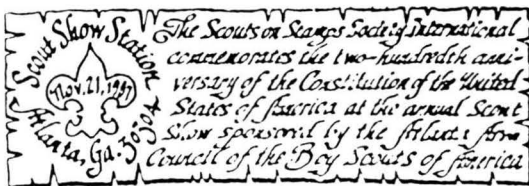 Scout Show Station
Nov. 21, 1987
Atlanta, Ga. 30304
The Scouts on Stamps Society International
commemorates the two-hundredth anni-
versary of the Constitution of the United
States of America at the annual Scout
Show sponsored by the Atlanta Area
Council of the Boy Scouts of America